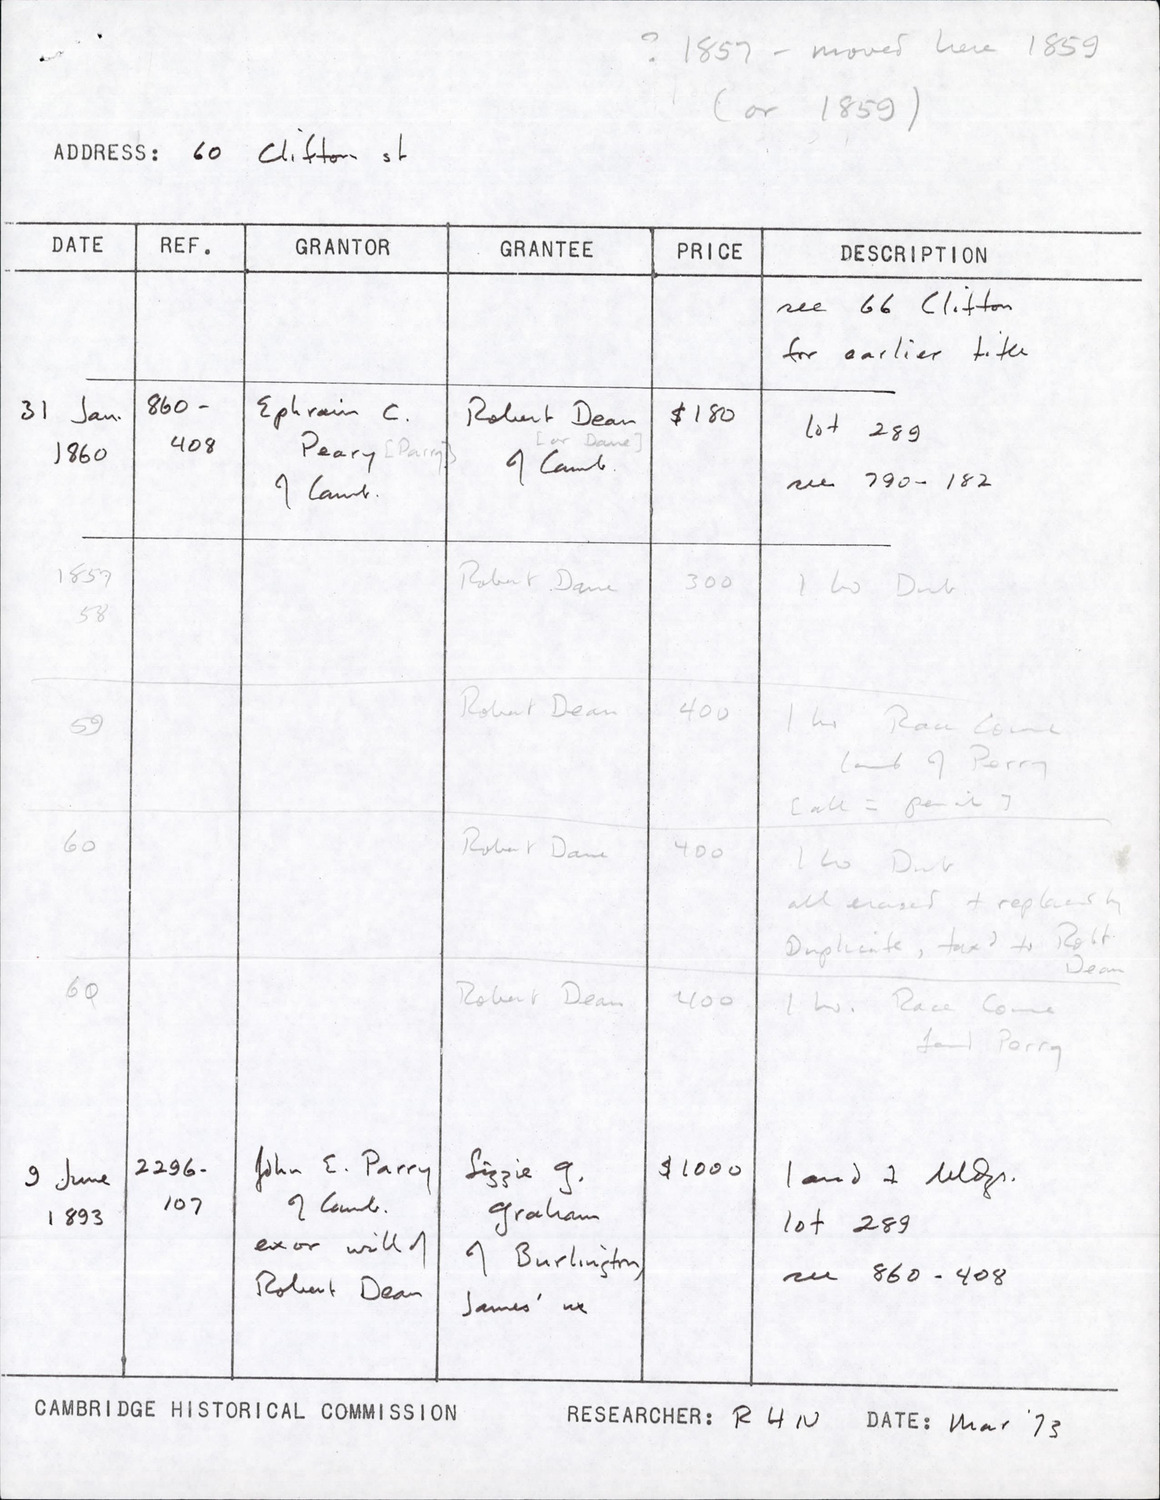 ? 1857 - moved here 1859
(or 1859)
ADDRESS: 60 Clifton st
DATE REF. GRANTOR GRANTEE PRICE DESCRIPTION
see 66 Clifton
for earlier title
31 Jan. 860- Ephraim C. Robert Dean $180 lot 289
1860 408 Peary [Parry] [or Dane] see 790-182
of Camb. of Camb.
1857 Robert Dane 300 1 ho Dub
58
59 Robert Dean 400 1 ho Race Course
land of Perry
[all = pencil]
60 Robert Dane 400 1 ho Dub
all erased + replaced by
Duplicate, taxd to Robt.
Dean
60 Robert Dean 400 1 ho. Race Course
land Perry
9 June 2296- John E. Parry Lizzie G. $1000 land & bldgs.
1893 107 of Camb. Graham lot 289
exor will of of Burlington, see 860-408
Robert Dean James' w
CAMBRIDGE HISTORICAL COMMISSION RESEARCHER: RHN DATE: Mar '73